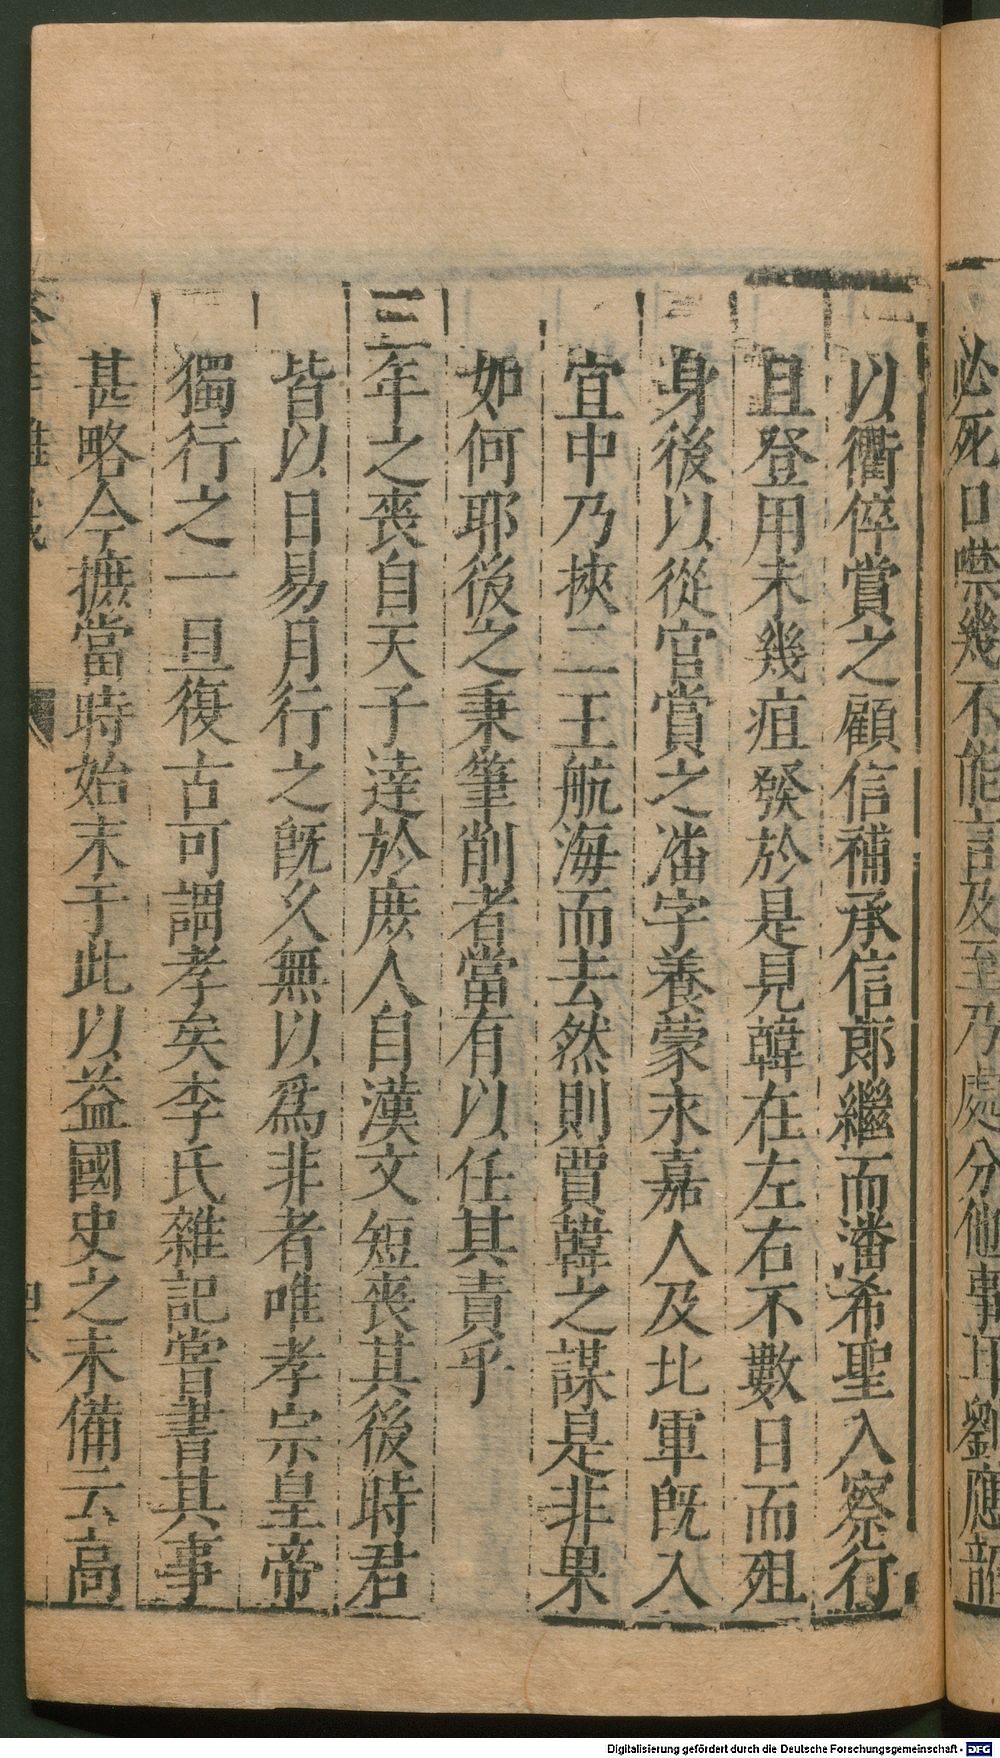 必死口噤幾不能言及至乃處分他事耳劉應龍
以衢倅賞之顧信補承信郎繼而潘希聖入察行
且登用未幾疽發於是見韓在左右不數日而殂
身後以從官賞之潘字養蒙永嘉人及北軍旣入
宜中乃挾二王航海而去然則賈韓之謀是非果
如何耶後之秉筆削者當有以任其責乎
三年之喪自天子達於庶人自漢文短喪其後時君
皆以日易月行之旣久無以爲非者唯孝宗皇帝
獨行之一旦復古可謂孝矣李氏雜記嘗書其事
甚略今摭當時始末于此以益國史之未備云高
Digitalisierung gefördert durch die Deutsche Forschungsgemeinschaft - DFG